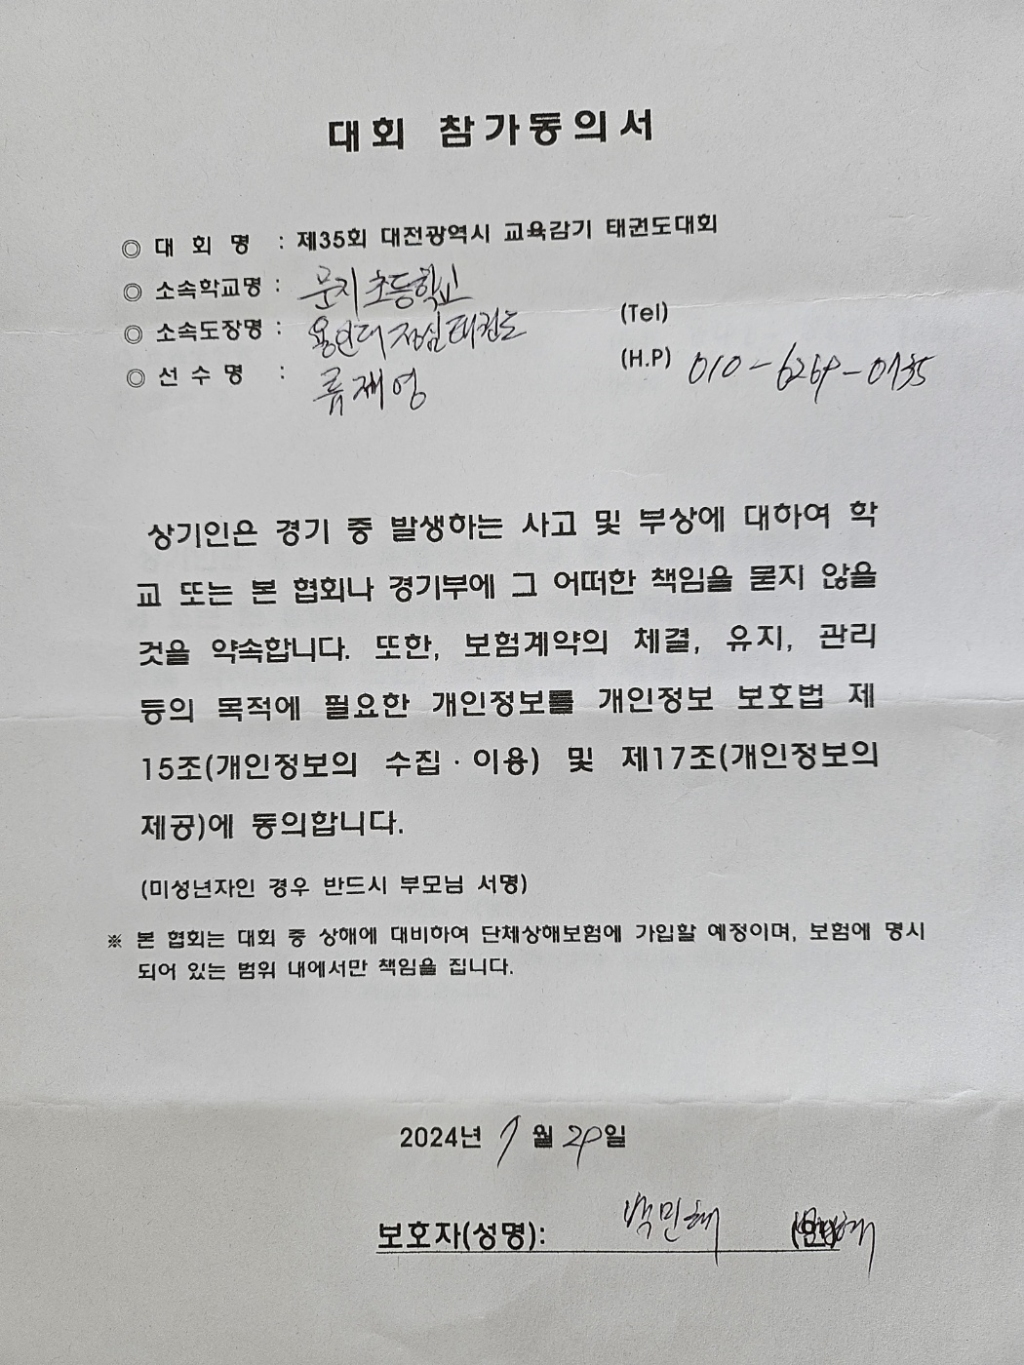 대회 참가동의서
◎ 대 회 명 : 제35회 대전광역시 교육감기 태권도대회
◎ 소속학교명 : 문지초등학교
◎ 소속도장명 : 용인대정심태권도 (Tel)
◎ 선 수 명 : 류재영 (H.P) 010-6269-0735
상기인은 경기 중 발생하는 사고 및 부상에 대하여 학
교 또는 본 협회나 경기부에 그 어떠한 책임을 묻지 않을
것을 약속합니다. 또한, 보험계약의 체결, 유지, 관리
등의 목적에 필요한 개인정보를 개인정보 보호법 제
15조(개인정보의 수집·이용) 및 제17조(개인정보의
제공)에 동의합니다.
(미성년자인 경우 반드시 부모님 서명)
※ 본 협회는 대회 중 상해에 대비하여 단체상해보험에 가입할 예정이며, 보험에 명시
되어 있는 범위 내에서만 책임을 집니다.
2024년 7월 29일
보호자(성명): 백민혜 (인)